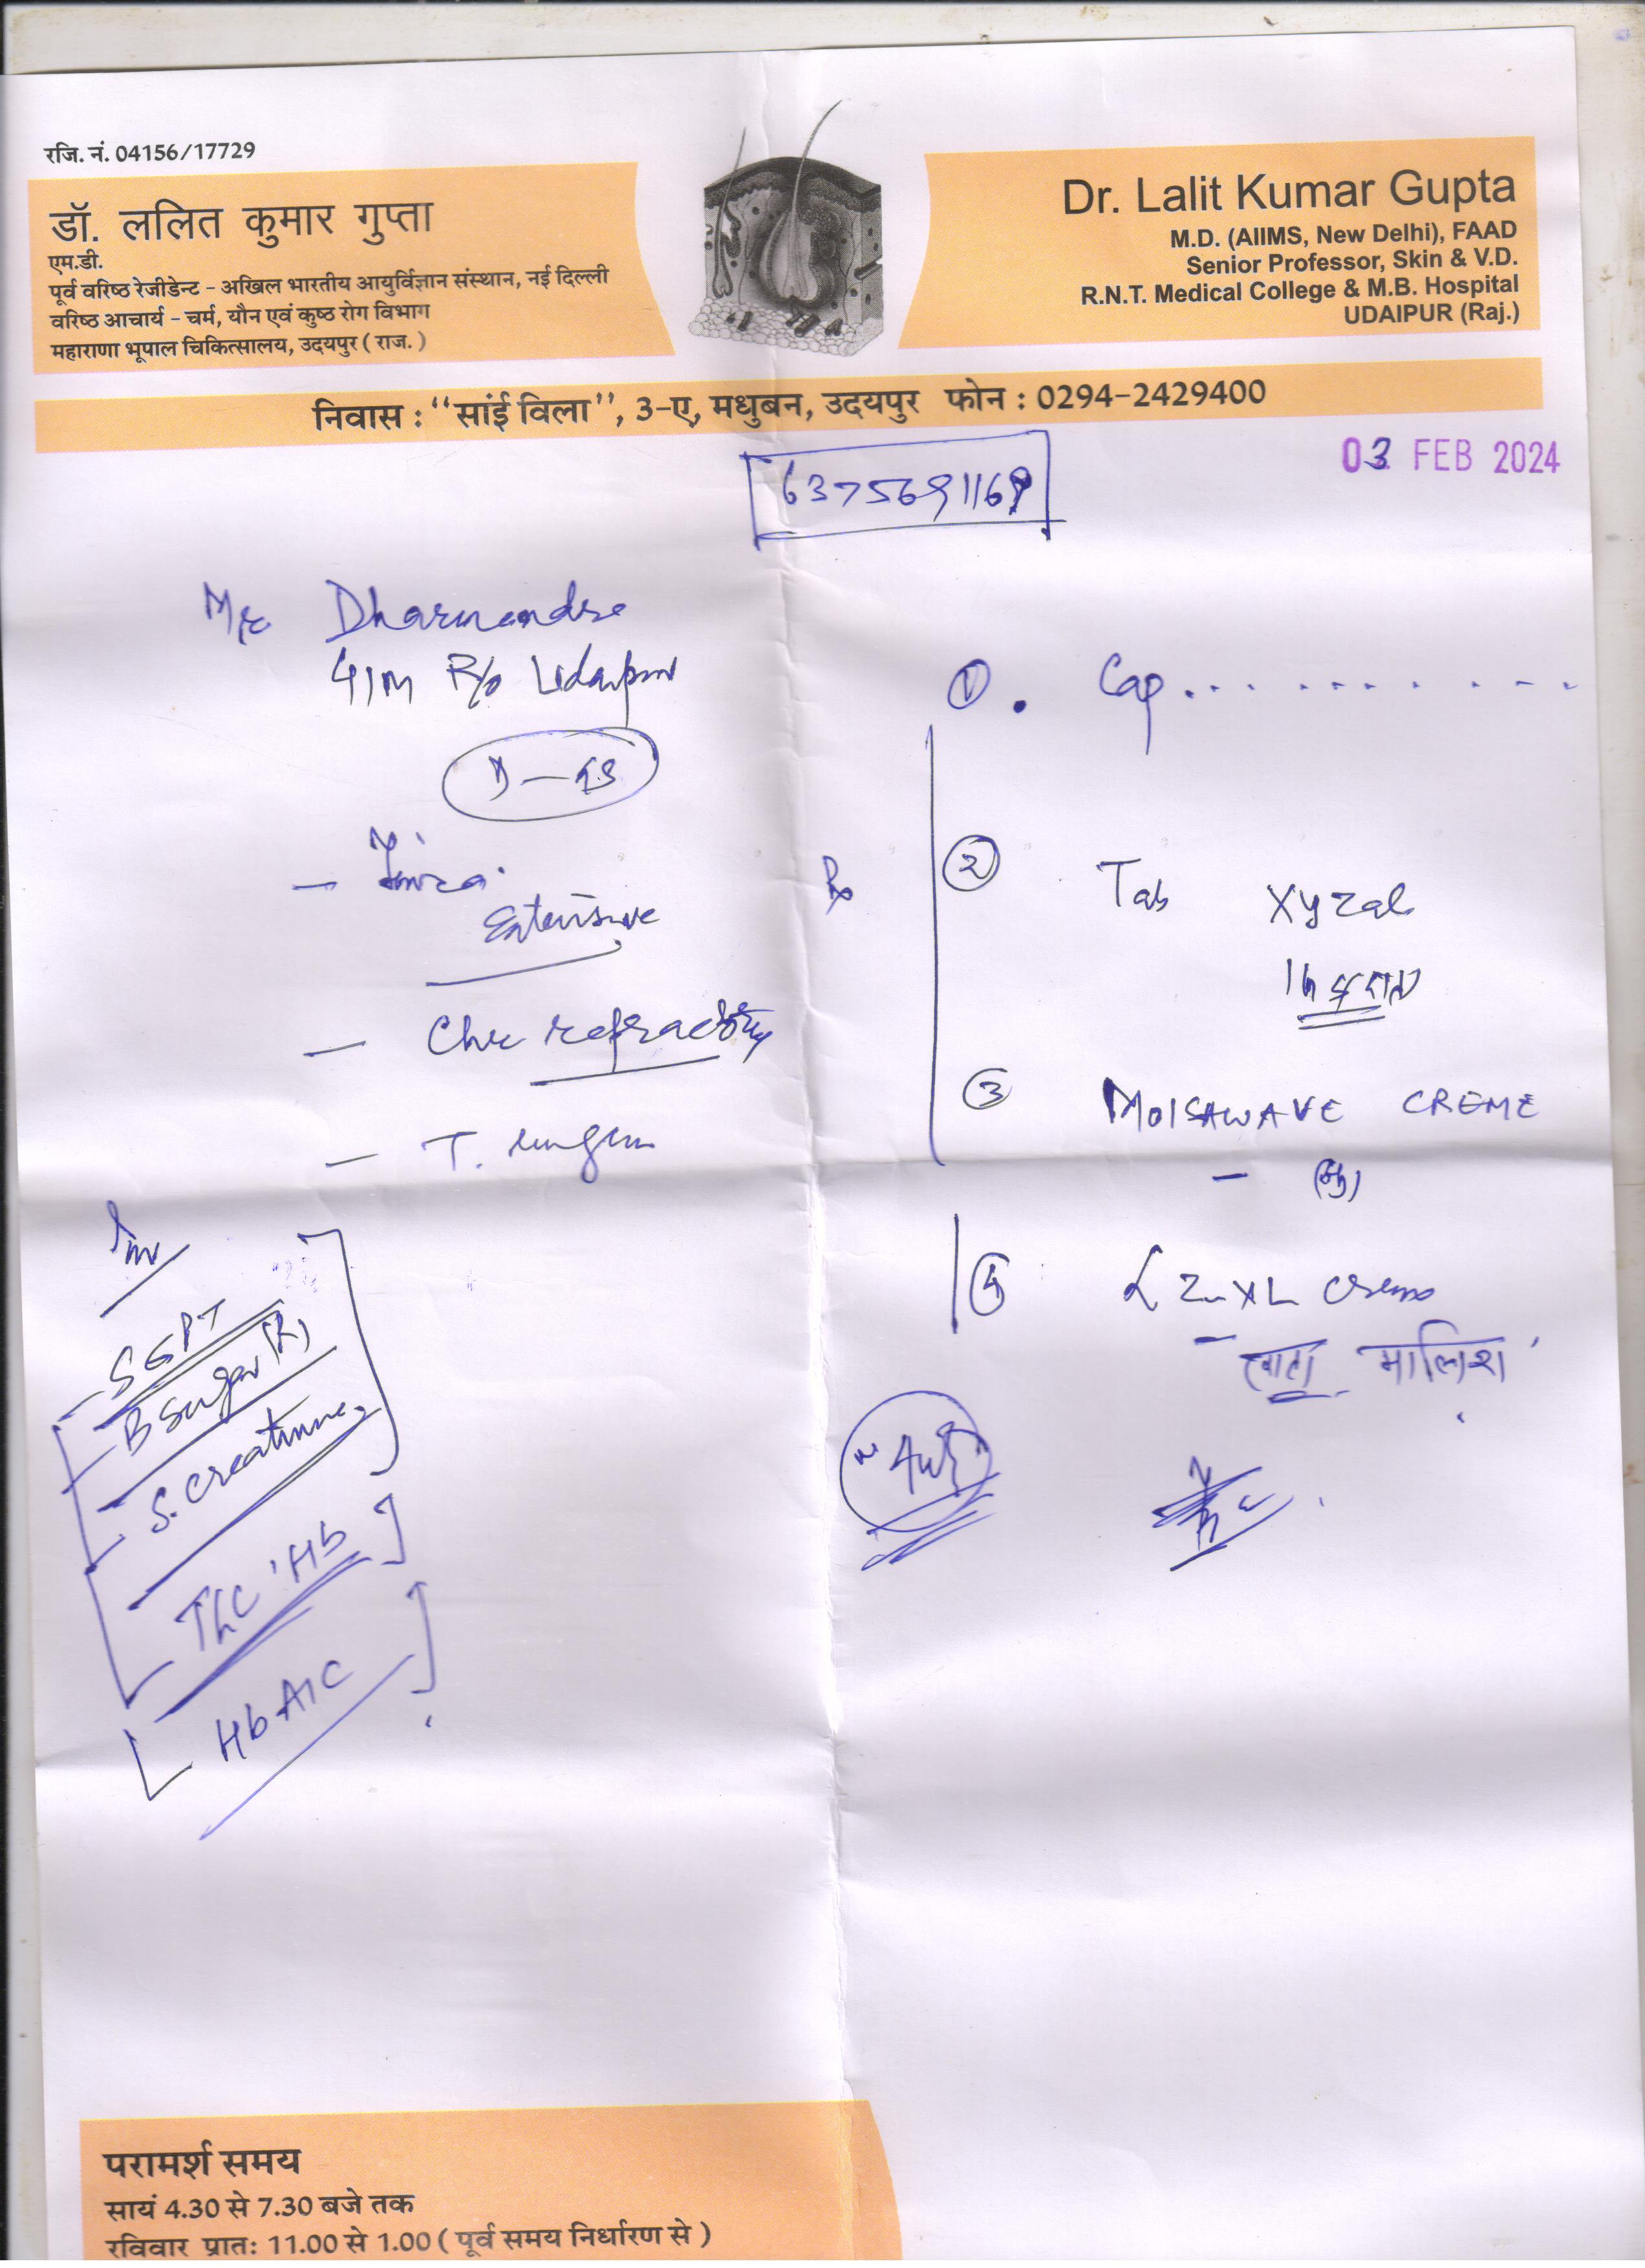 रजि. नं. 04156/17729
डॉ. ललित कुमार गुप्ता
एम.डी.
पूर्व वरिष्ठ रेजीडेन्ट - अखिल भारतीय आयुर्विज्ञान संस्थान, नई दिल्ली
वरिष्ठ आचार्य - चर्म, यौन एवं कुष्ठ रोग विभाग
महाराणा भूपाल चिकित्सालय, उदयपुर ( राज. )
Dr. Lalit Kumar Gupta
M.D. (AIIMS, New Delhi), FAAD
Senior Professor, Skin & V.D.
R.N.T. Medical College & M.B. Hospital
UDAIPUR (Raj.)
निवास : "सांई विला", 3-ए, मधुबन, उदयपुर फोन : 0294-2429400
03 FEB 2024
6375691169
Mr Dharmendra
41M R/o Udaipur
- Tinea
Extensive
- Chr refractory
- T.
Inv
- SGPT
- B Sugar (R)
- S. Creatinine
TLC, Hb
HbA1C
① . Cap ...........
Rx
② Tab Xyzal
③ MOISAWAVE CREME
④ LZ-XL Creme
मालिश
परामर्श समय
सायं 4.30 से 7.30 बजे तक
रविवार प्रातः 11.00 से 1.00 ( पूर्व समय निर्धारण से )